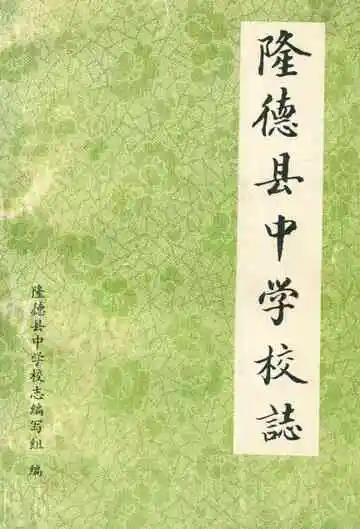 隆德县中学校誌
隆德县中学校志编写组 编